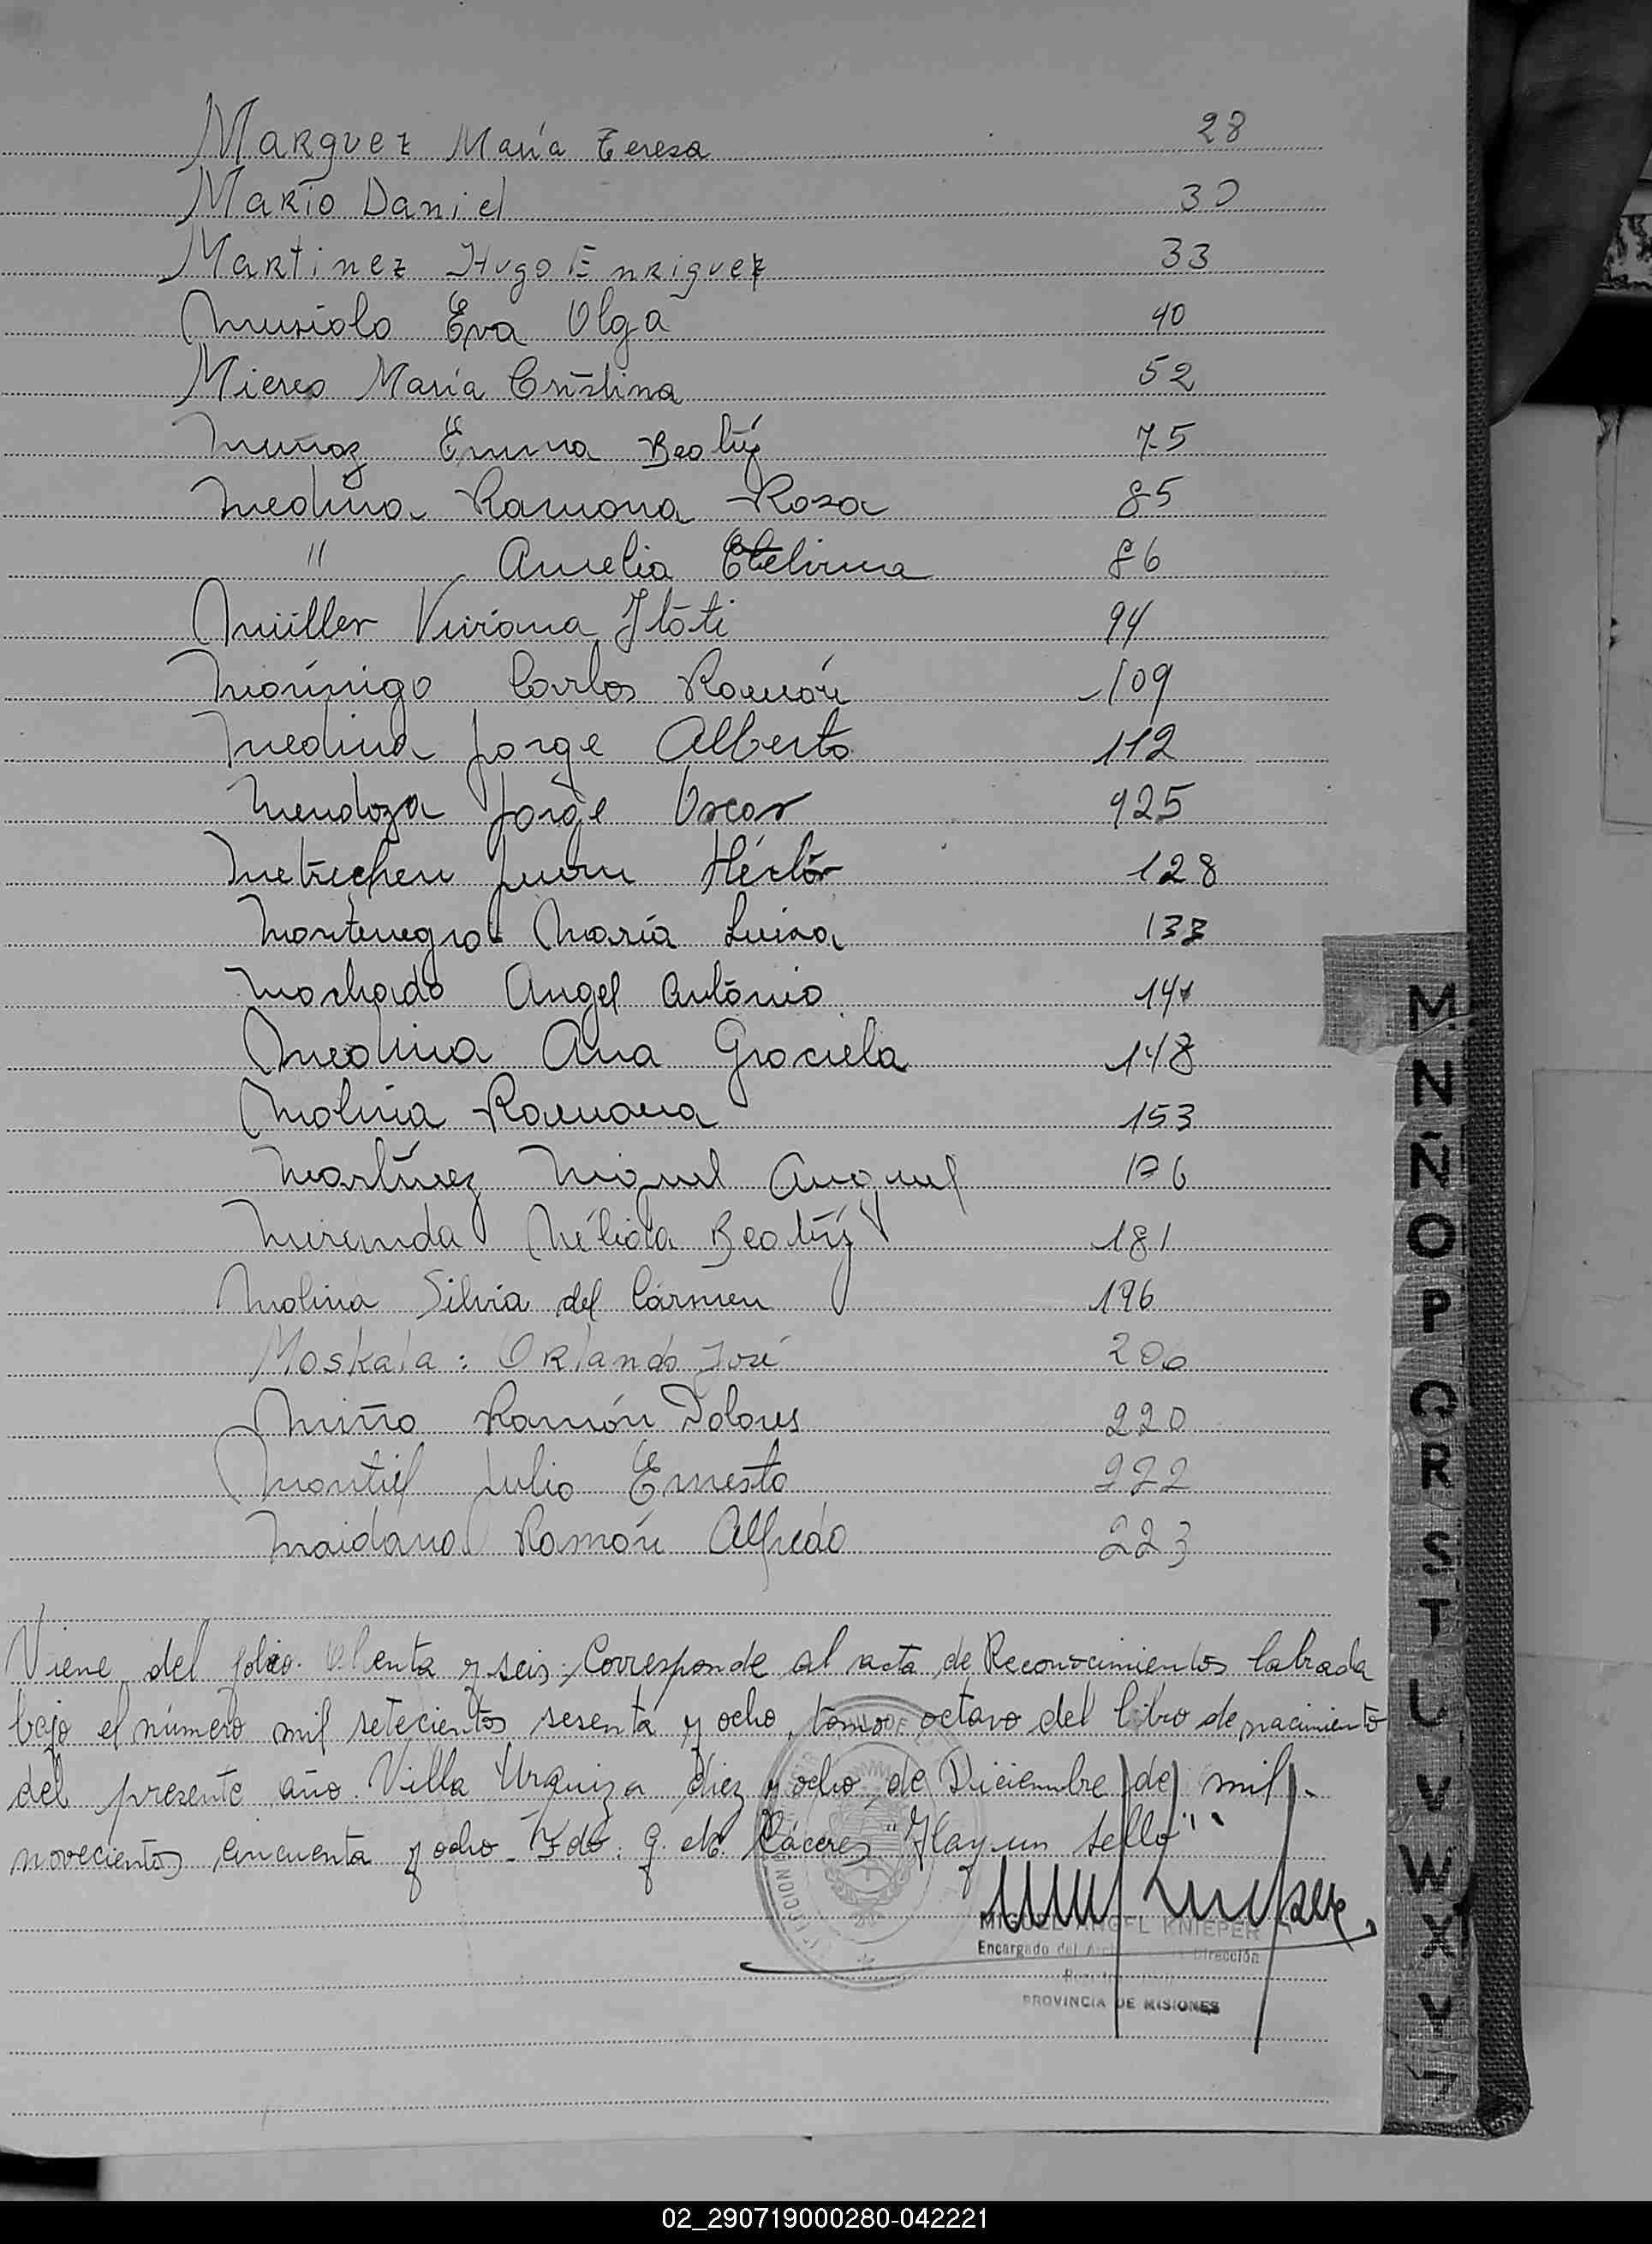 Marquez María Teresa 28
Mario Daniel 30
Martinez Hugo Enriquez 33
Musiolo Eva Olga 40
Mieres María Cristina 52
Muñoz Emma Beatríz 75
Medina Ramona Rosa 85
" Amelia Etelvina 86
Müiller Viviana Itatí 94
Morínigo Carlos Ramón 109
Medina Jorge Alberto 112
Mendoza Jorge Oscar 125
Metrechen Juan Héctor 128
Montenegro María Luisa 133
Machado Angel Antonio 141
Medina Ana Graciela 148
Molina Ramona 153
Martínez Miguel Angel 176
Miranda Nélida Beatríz 181
Molina Silvia del Cármen 196
Moskala: Orlando José 200
Miño Ramón Dolores 220
Montiel Julio Ernesto 222
Maidana Ramón Alfredo 223
Viene del folio Ochenta y seis; Corresponde al acta de Reconocimientos labrada
bajo el número mil setecientos sesenta y ocho, tomo octavo del libro de nacimiento
del presente año. Villa Urquiza diez y ocho de Diciembre de mil
novecientos cincuenta y ocho. Fdo: Cáceres "Hay un sello"
MIGUEL ANGEL KNIEPER
Encargado del Dirección
PROVINCIA DE MISIONES
M
N
Ñ
O
P
Q
R
S
T
U
V
W
X
Y
Z
02_290719000280-042221